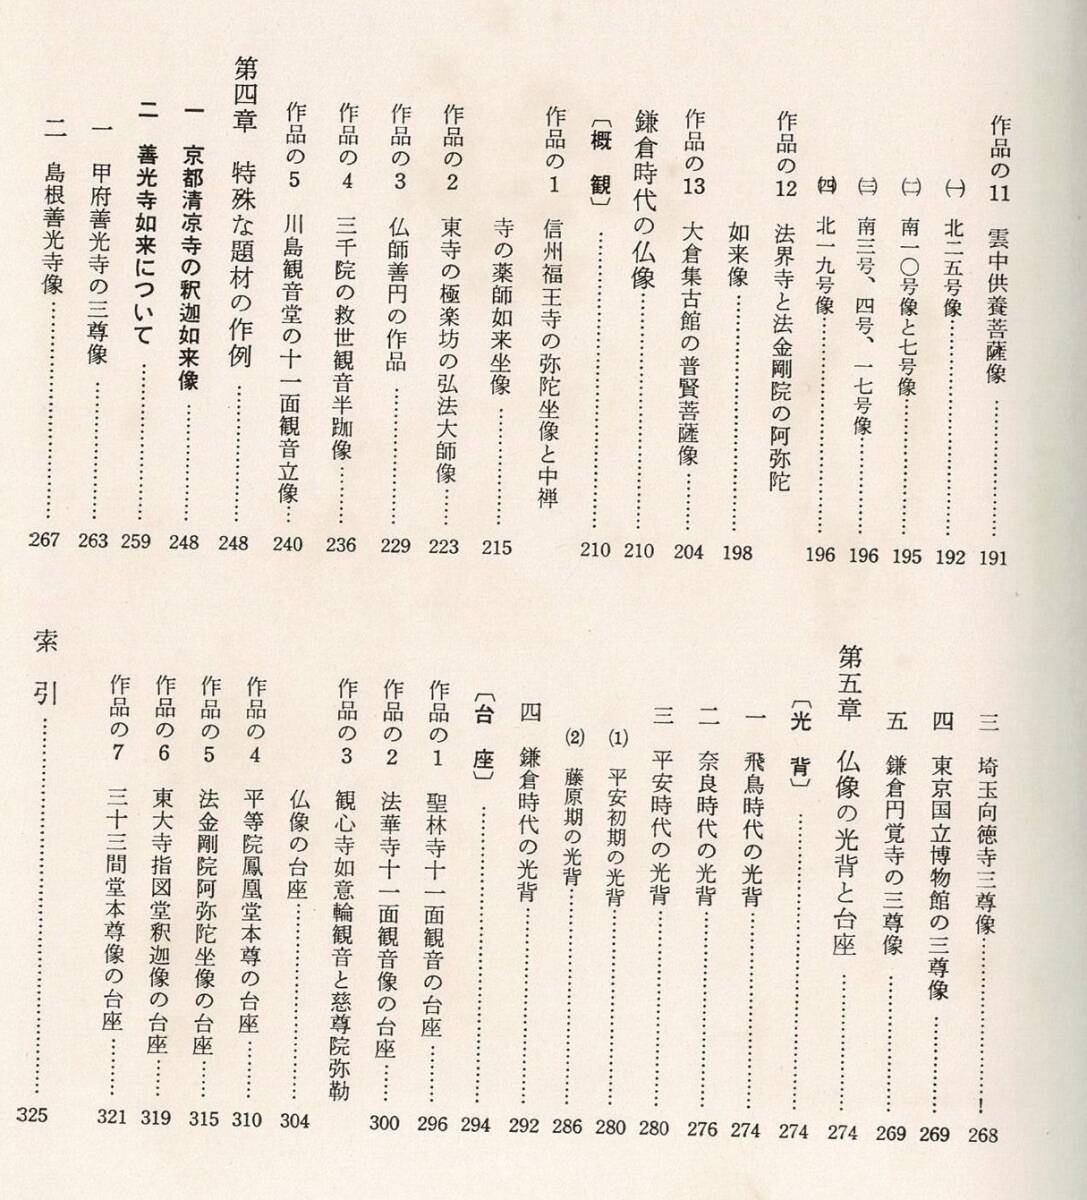 作品の11　雲中供養菩薩像…………191
㈠　北二五号像…………192
㈡　南一〇号像と七号像…………195
㈢　南三号、四号、一七号像…………196
㈣　北一九号像…………196
作品の12　法界寺と法金剛院の阿弥陀
如来像…………198
作品の13　大倉集古館の普賢菩薩像…………204
鎌倉時代の仏像…………210
〔概　観〕…………210
作品の1　信州福王寺の弥陀坐像と中禅
寺の薬師如来坐像…………215
作品の2　東寺の極楽坊の弘法大師像…………223
作品の3　仏師善円の作品…………229
作品の4　三千院の救世観音半跏像…………236
作品の5　川島観音堂の十一面観音立像…………240
第四章　特殊な題材の作例…………248
一　京都清凉寺の釈迦如来像…………248
二　善光寺如来について…………259
一　甲府善光寺の三尊像…………263
二　島根善光寺像…………267
三　埼玉向徳寺三尊像…………268
四　東京国立博物館の三尊像…………269
五　鎌倉円覚寺の三尊像…………269
第五章　仏像の光背と台座…………274
〔光　背〕…………274
一　飛鳥時代の光背…………274
二　奈良時代の光背…………276
三　平安時代の光背…………280
(1)　平安初期の光背…………280
(2)　藤原期の光背…………286
四　鎌倉時代の光背…………292
〔台　座〕…………294
作品の1　聖林寺十一面観音の台座…………296
作品の2　法華寺十一面観音像の台座…………300
作品の3　観心寺如意輪観音と慈尊院弥勒
仏像の台座…………304
作品の4　平等院鳳凰堂本尊の台座…………310
作品の5　法金剛院阿弥陀坐像の台座…………315
作品の6　東大寺指図堂釈迦像の台座…………319
作品の7　三十三間堂本尊像の台座…………321
索　引…………325